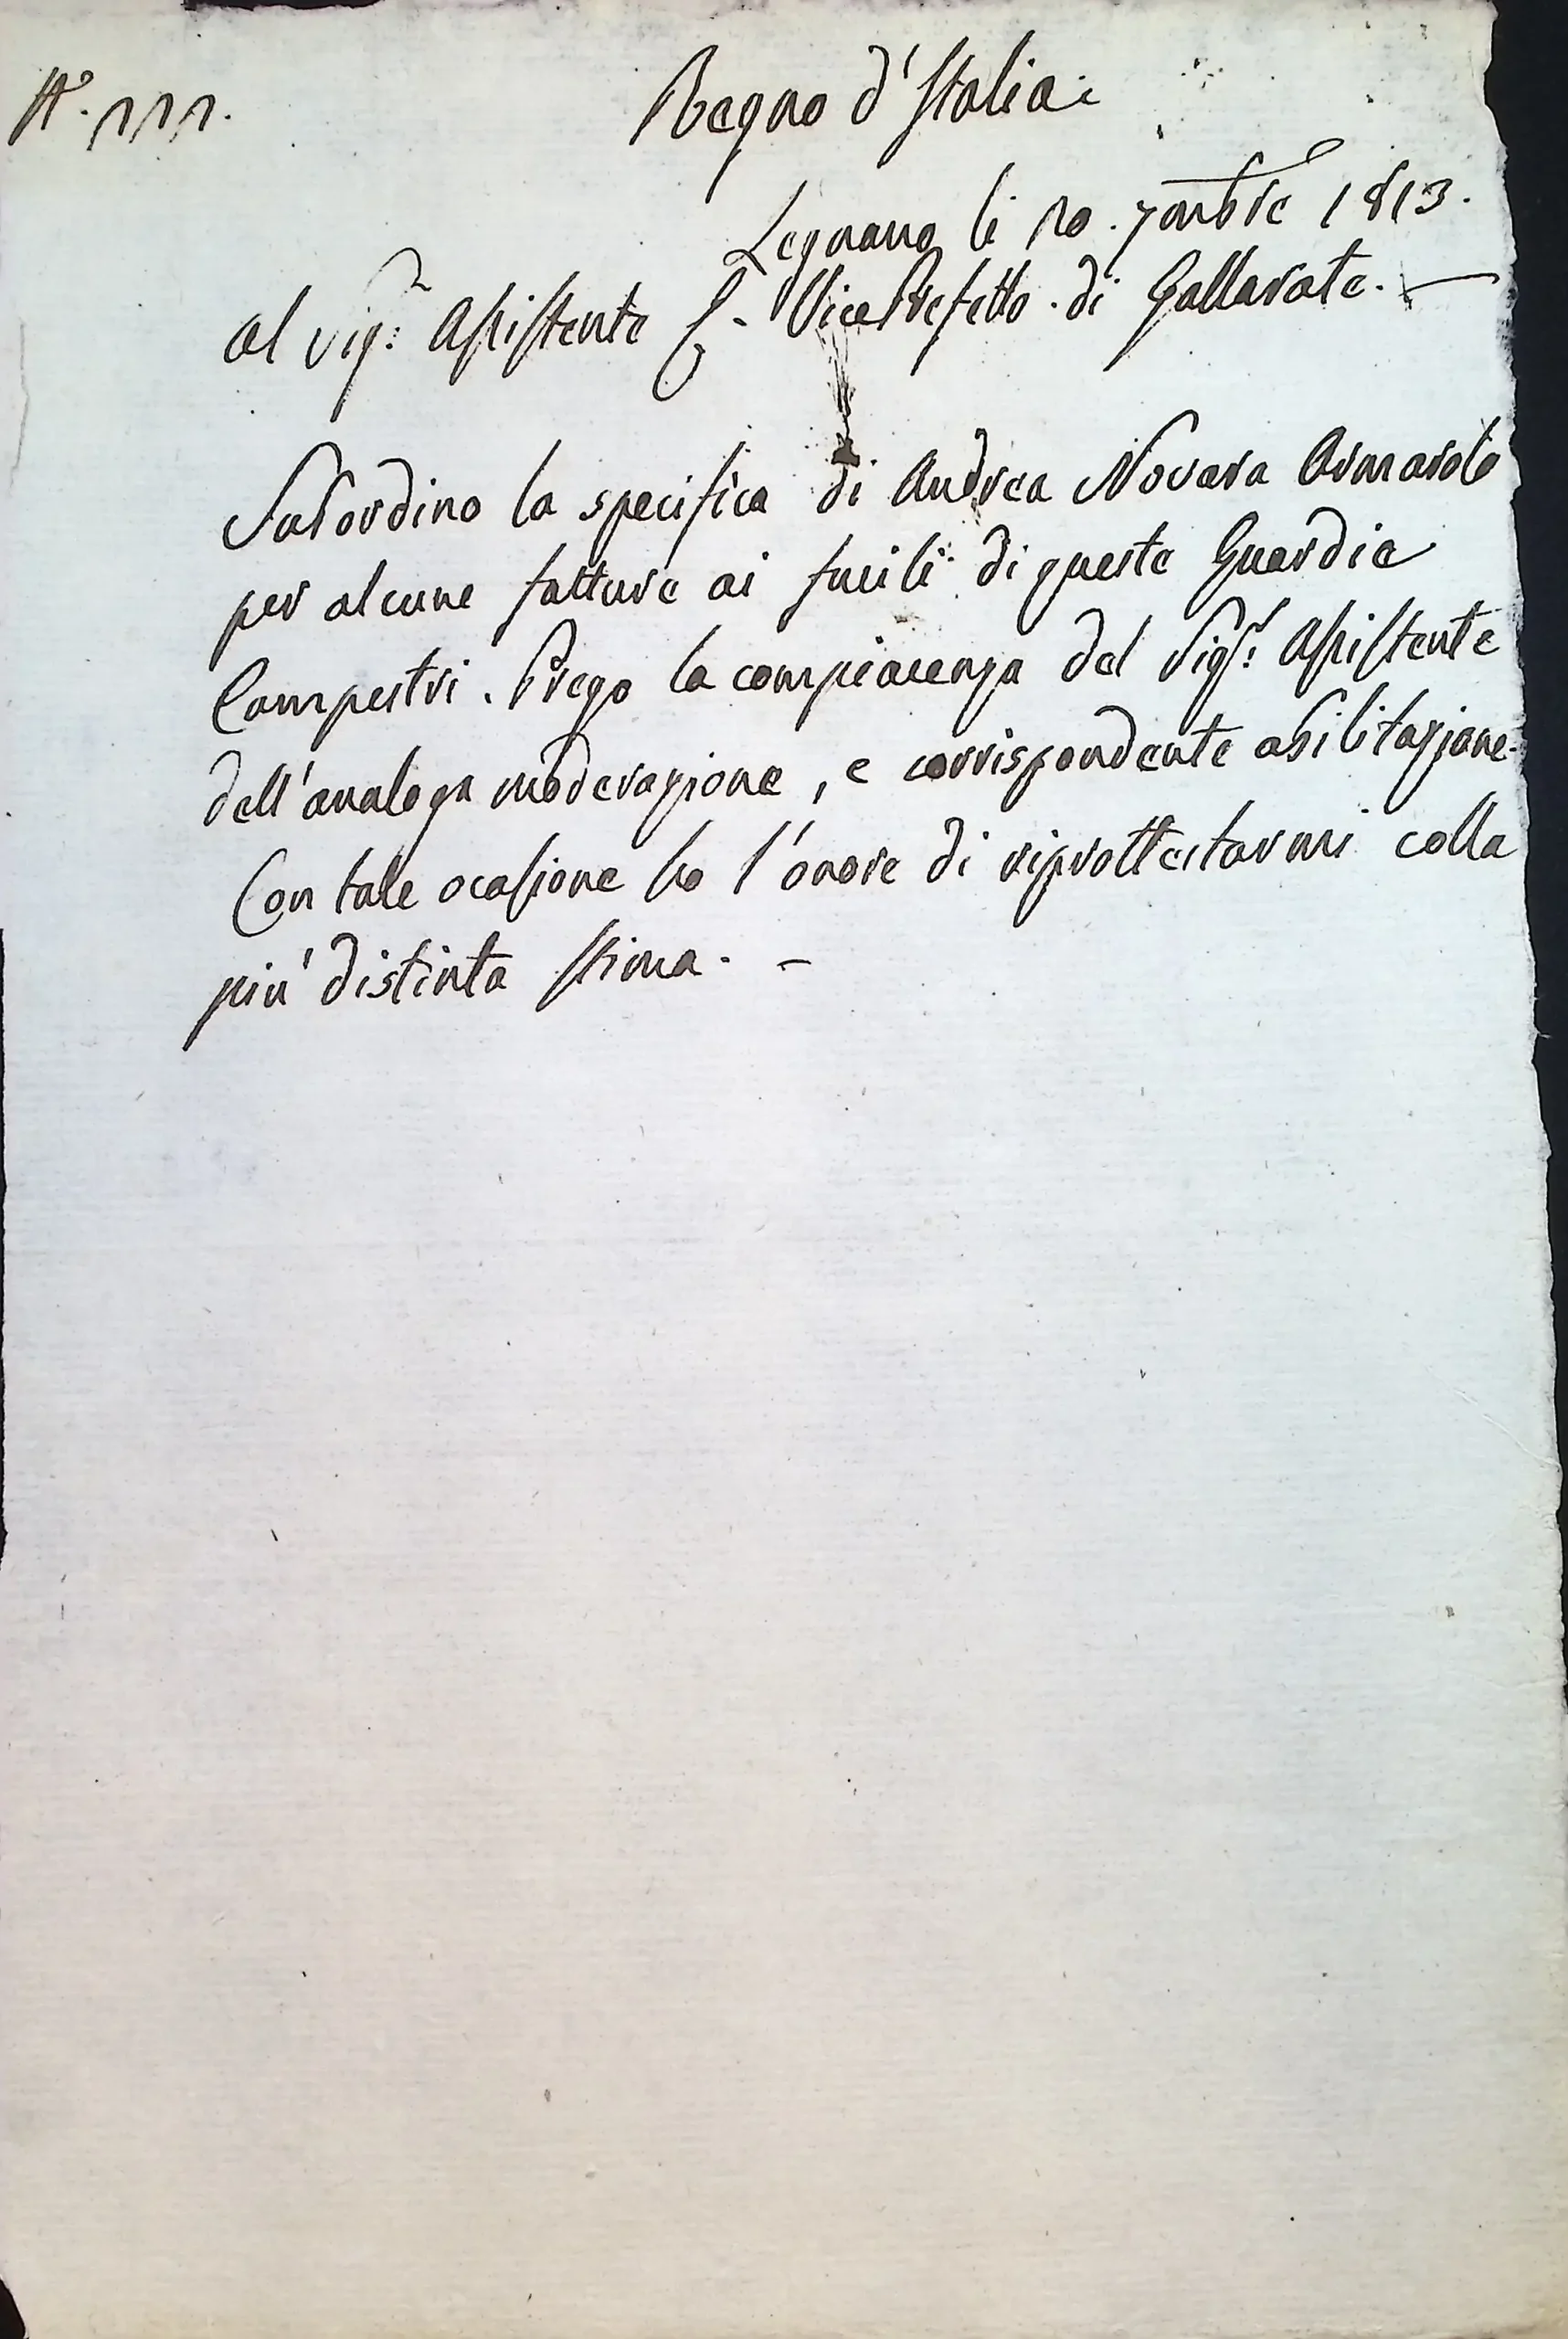 N.° 111.
Regno d'Italia.
Legnano li 10. 7mbre 1813.
Al Sig.r Assistente f. VicePrefetto di Gallarate. —
Subordino la specifica di Andrea Novara Armarolo
per alcune fatture ai fucili di queste Guardie
Campestri. Prego la compiacenza del Sig.r Assistente
dell'analoga moderazione, e corrispondente abilitazione.
Con tale ocasione ho l'onore di riprottestarmi colla
più distinta stima. —